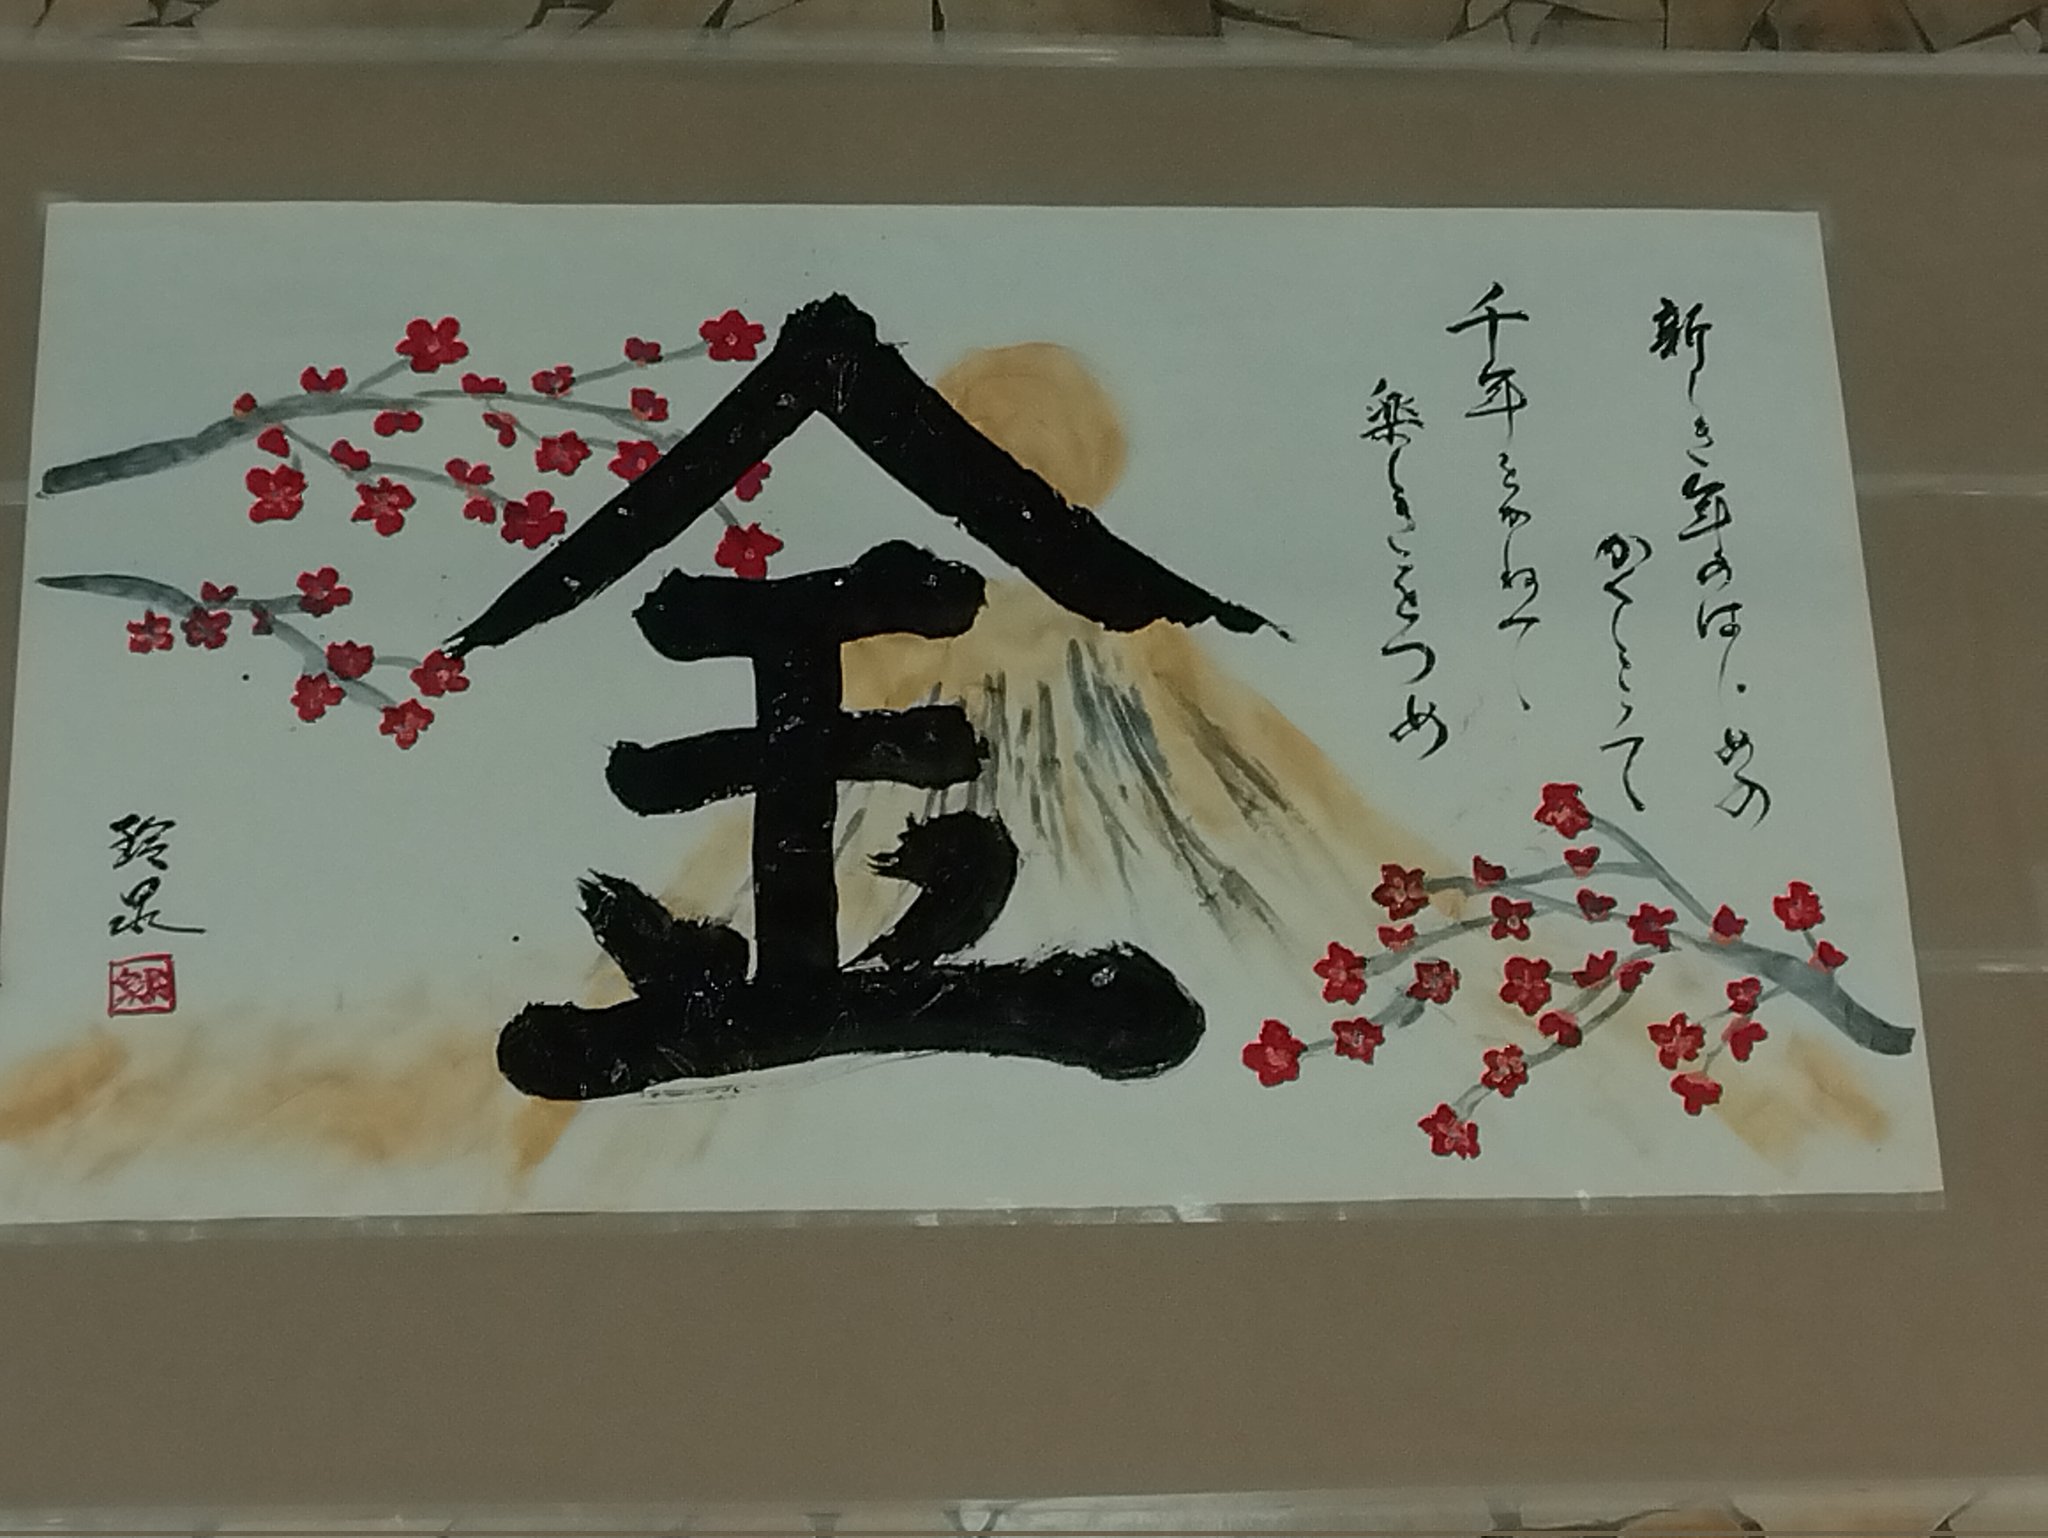 新しき年のはじめの
かくしこそ
千年をかねて
楽しきをつめ
金
玲泉